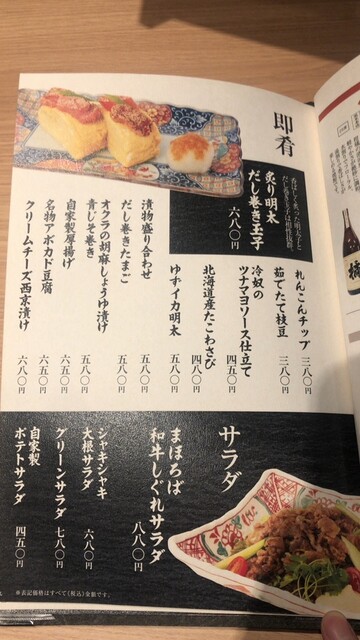 即肴
香ばしく炙った明太子と
だし巻き玉子は相性抜群。
炙り明太
だし巻き玉子
六八〇円
れんこんチップ 三八〇円
茹でたて枝豆 三八〇円
冷奴の
ツナマヨソース仕立て 四五〇円
北海道産たこわさび 四八〇円
ゆずイカ明太 五八〇円
漬物盛り合わせ 五八〇円
だし巻きたまご 五八〇円
オクラの胡麻しょうゆ漬け
青じそ巻き 五八〇円
自家製厚揚げ 六五〇円
名物アボカド豆腐 六八〇円
クリームチーズ西京漬け 六八〇円
サラダ
まほろば
和牛しぐれサラダ
八八〇円
シャキシャキ
大根サラダ 六八〇円
グリーンサラダ 七八〇円
自家製
ポテトサラダ 四五〇円
※表記価格はすべて(税込)金額です。